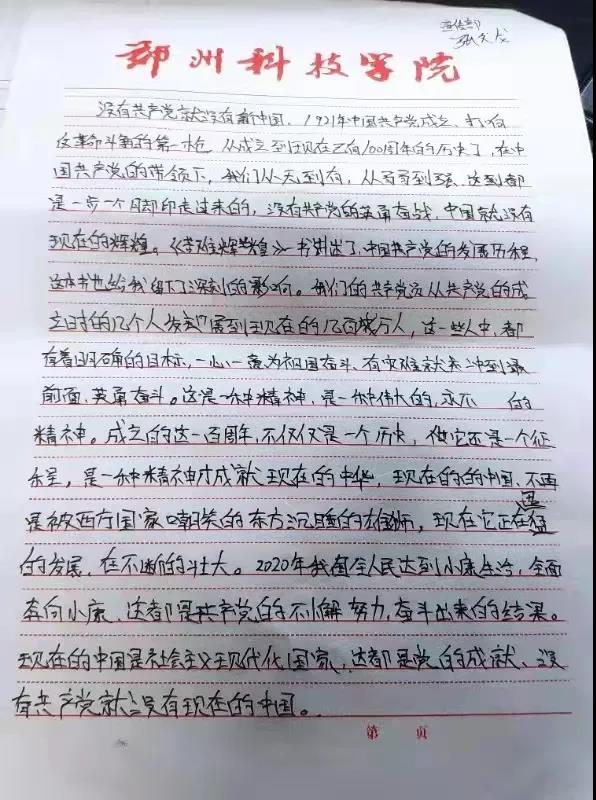 宣传部
郑州科技学院
没有共产党就没有新中国，1921年中国共产党成立，打响
革命斗争的第一枪，从成立到现在已有100周年的历史了，在中
国共产党的带领下，我们从无到有，从弱到强，这到都
是一步一个脚印走过来的，没有共产党的英勇奋战，中国就没有
现在的辉煌。《苦难辉煌》一书讲出了，中国共产党的发展历程，
这本书也给我留下了深刻的影响。我们的共产党员从共产党的成
立时的几个人发展到现在的几百成万人，这一些人中，都
有着明确的目标，一心一意为祖国奋斗，有灾难就来冲到最
前面，英勇奋斗。这是一种精神，是一种伟大的，永不 的
精神。成立的这一百周年，不仅仅是一个历史，但它还是一个征
程，是一种精神才成就现在的中华，现在的的中国，不再
是被西方国家嘲笑的东方沉睡的雄狮，现在它正在迅猛
的发展，在不断的壮大。2020年我国全人民达到小康生活，全面
奔向小康，这都是共产党的不懈努力，奋斗出来的结果。
现在的中国是社会主义现代化国家，这都是党的成就，没
有共产党就没有现在的中国。
第 页